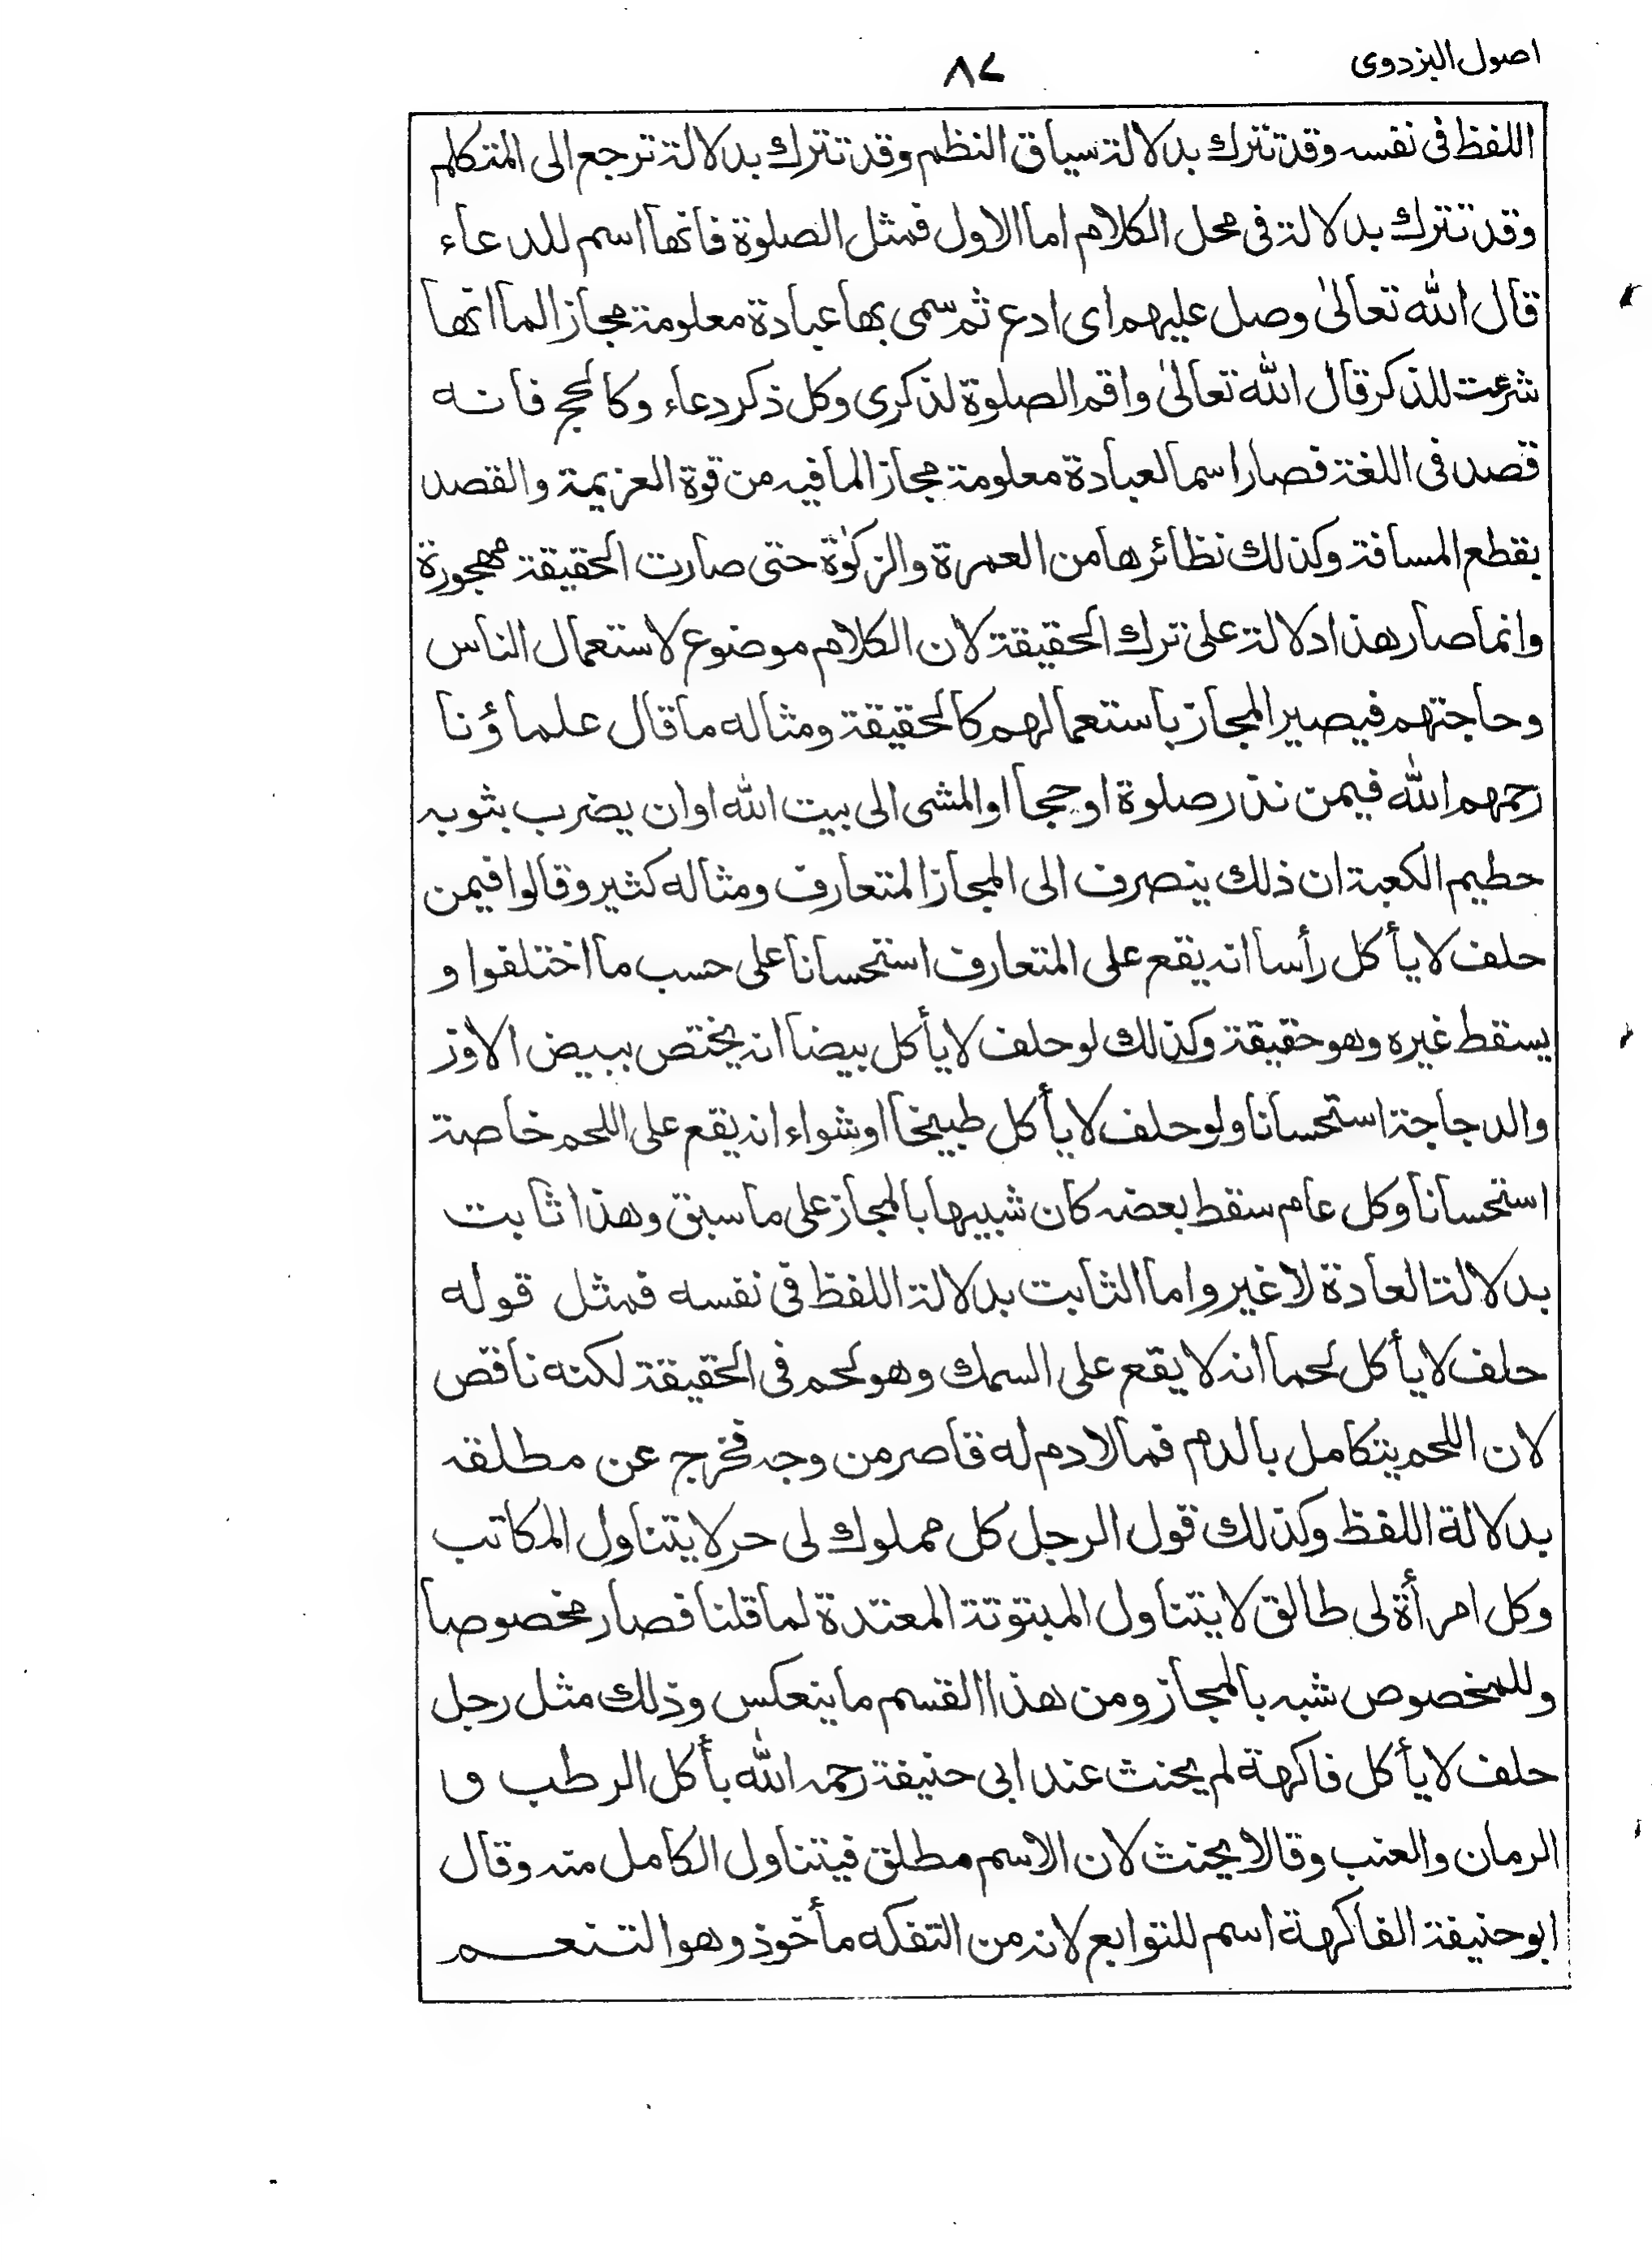 اصول البزدوی
۸۷
اللفظ فی نفسه وقد تترك بدلالة سیاق النظم وقد تترك بدلالة ترجع الی المتکلم
وقد تترك بدلالة فی محل الکلام اما الاول فمثل الصلوة فانها اسم للدعاء
قال الله تعالیٰ وصل علیهم ای ادع ثم سمی بها عبادة معلومة مجازا لما انها
شرعت للذکر قال الله تعالیٰ واقم الصلوة لذکری وکل ذکر دعاء وکالحج فانه
قصد فی اللغة فصار اسما لعبادة معلومة مجازا لما فیه من قوة العزیمة والقصد
بقطع المسافة وکذلك نظائرها من العمرة والزکوٰة حتی صارت الحقیقة مهجورة
وانما صار هذا دلالة علی ترك الحقیقة لان الکلام موضوع لاستعمال الناس
وحاجتهم فیصیر المجاز باستعمالهم کالحقیقة ومثاله ما قال علماؤنا
رحمهم الله فیمن نذر صلوة او حجا او المشی الی بیت الله او ان یضرب بثوبه
حطیم الکعبة ان ذلك ینصرف الی المجاز المتعارف ومثاله کثیر وقالوا فیمن
حلف لا یأکل رأسا انه یقع علی المتعارف استحسانا علی حسب ما اختلفوا و
یسقط غیره وهو حقیقة وکذلك لو حلف لا یأکل بیضا انه یختص ببیض الاوز
والدجاجة استحسانا ولو حلف لا یأکل طبیخا او شواء انه یقع علی اللحم خاصة
استحسانا وکل عام سقط بعضه کان شبیها بالمجاز علی ما سبق وهذا ثابت
بدلالة العادة لا غیر واما الثابت بدلالة اللفظ فی نفسه فمثل قوله
حلف لا یأکل لحما انه لا یقع علی السمك وهو لحم فی الحقیقة لکنه ناقص
لان اللحم یتکامل بالدم فما لا دم له قاصر من وجه فخرج عن مطلقه
بدلالة اللفظ وکذلك قول الرجل کل مملوك لی حر لا یتناول المکاتب
وکل امرأة لی طالق لا یتناول المبتوتة المعتدة لما قلنا فصار مخصوصا
وللمخصوص شبه بالمجاز ومن هذا القسم ما ینعکس وذلك مثل رجل
حلف لا یأکل فاکهة لم یحنث عند ابی حنیفة رحمه الله بأکل الرطب و
الرمان والعنب وقالا یحنث لان الاسم مطلق فیتناول الکامل منه وقال
ابو حنیفة الفاکهة اسم للتوابع لانه من التفکه مأخوذ وهو التنعم